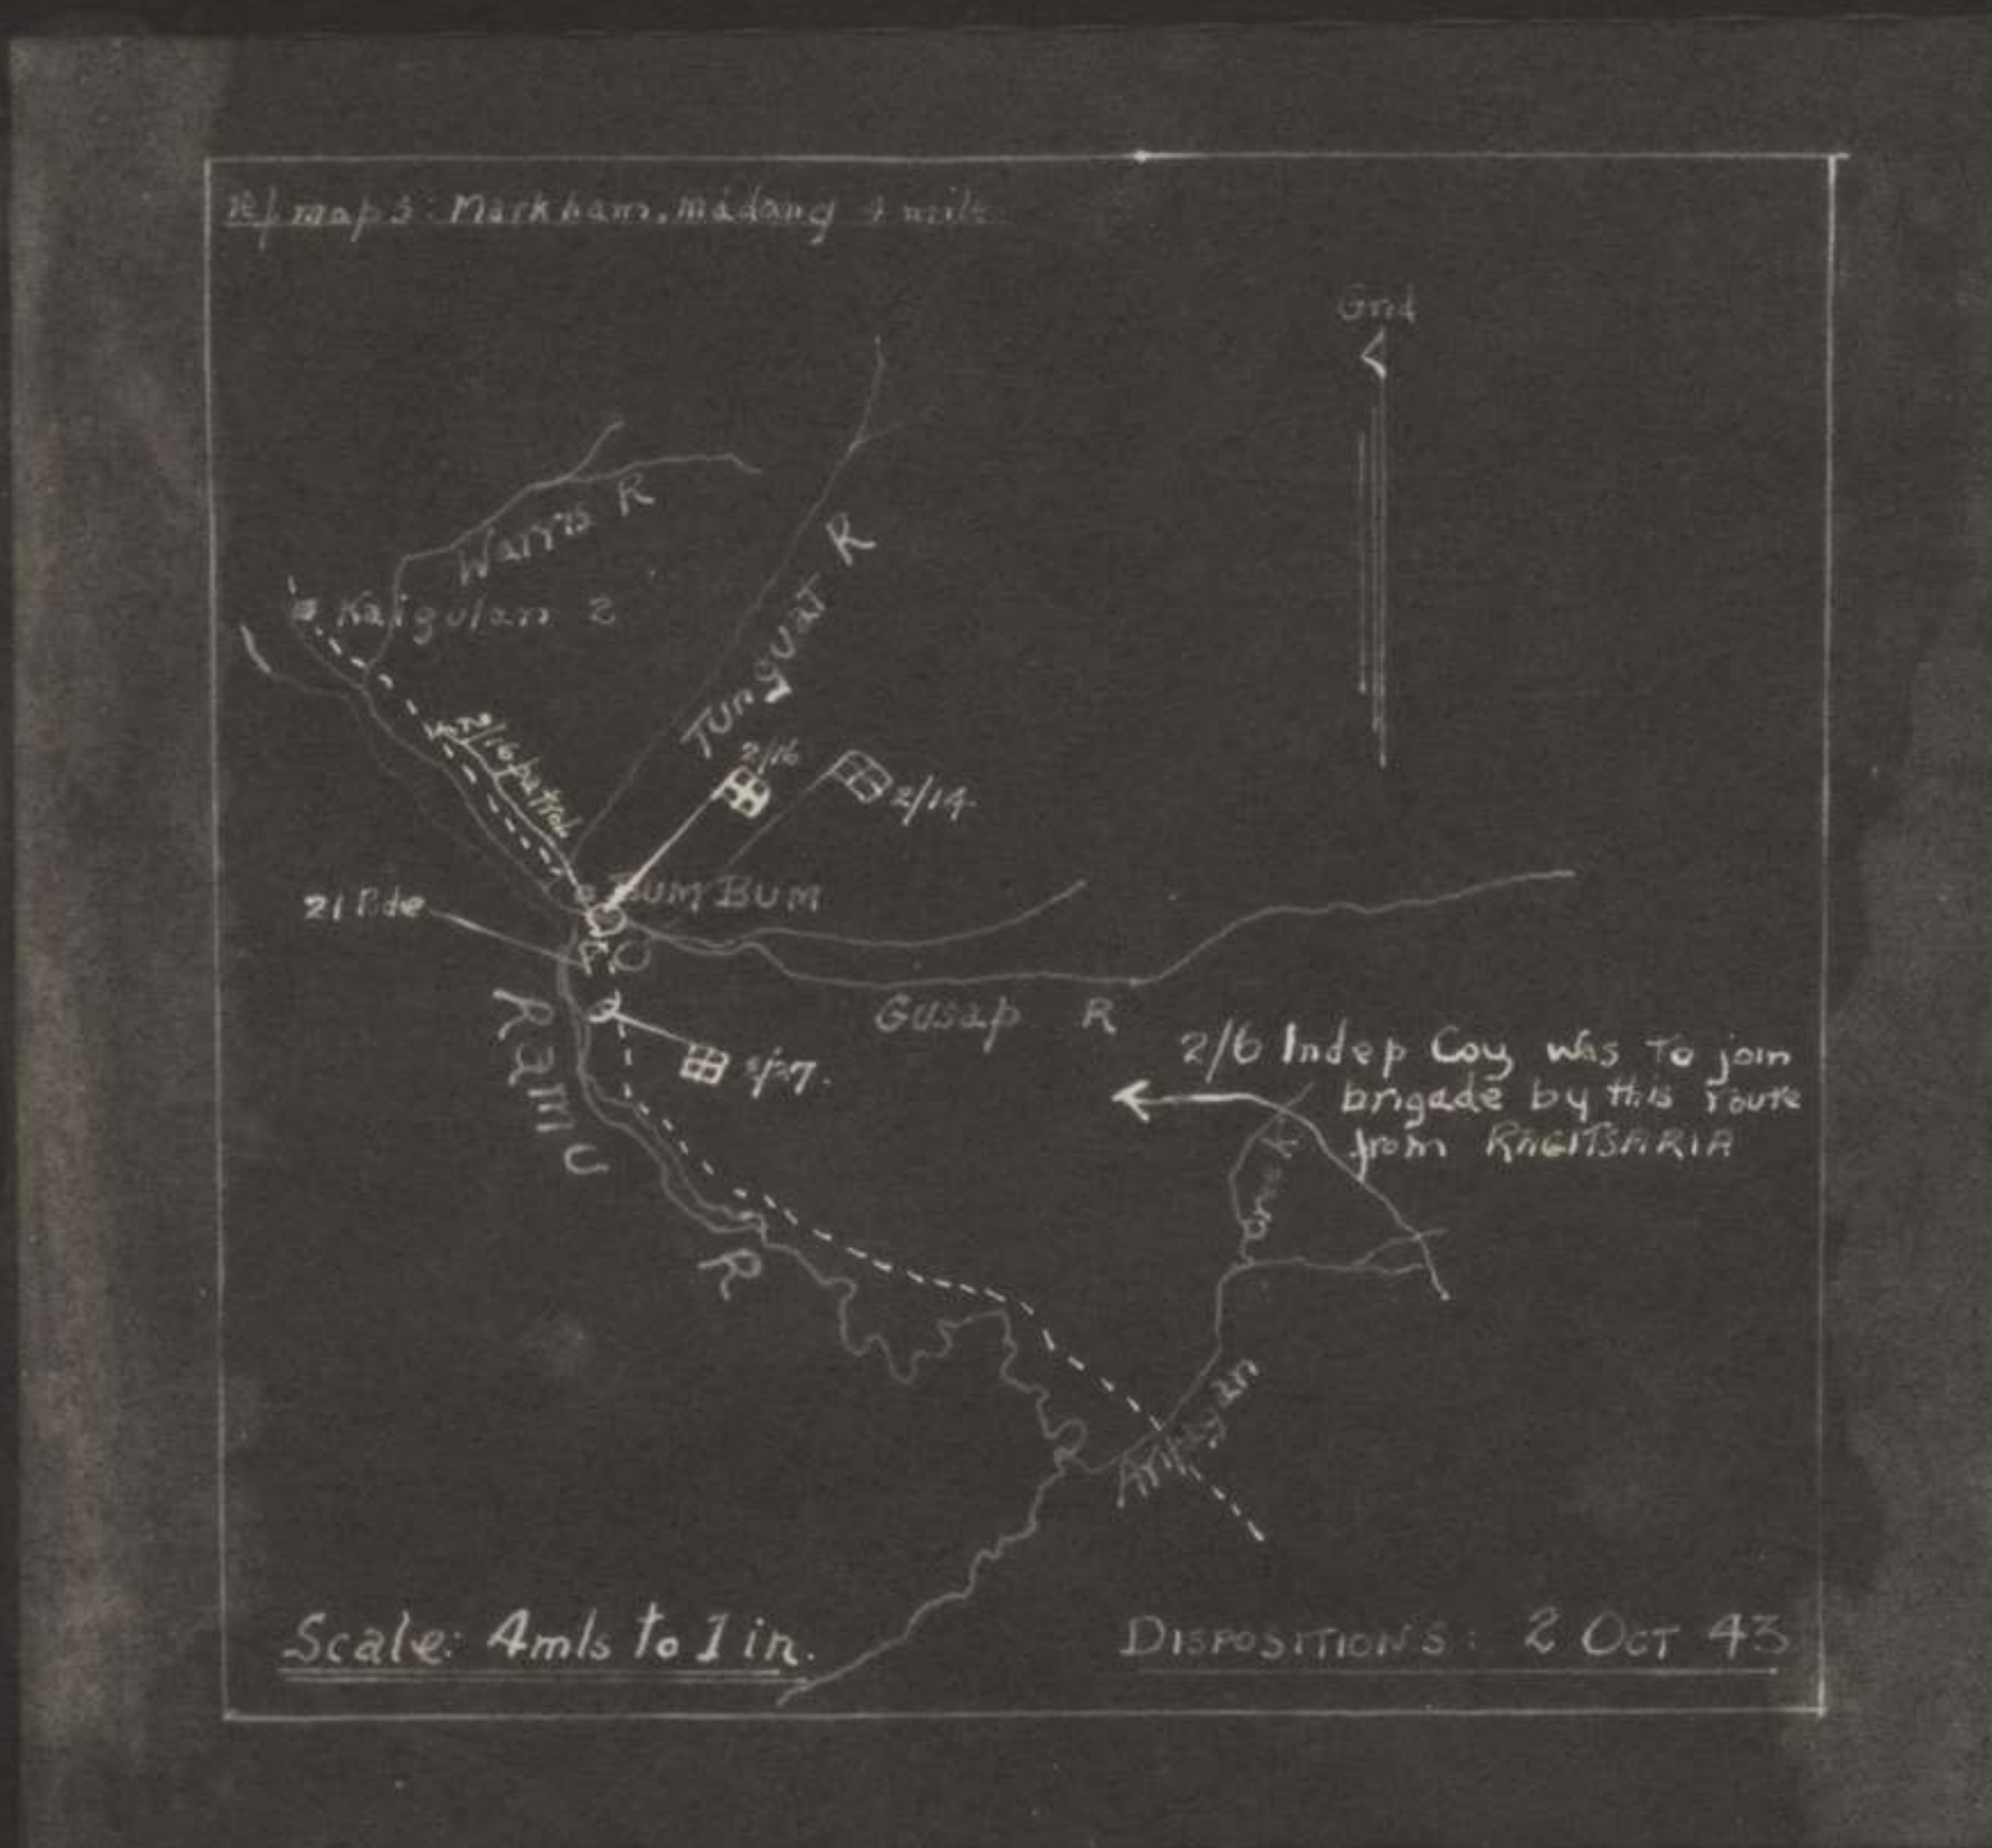 ref maps: Markham, Madang 4 mile
Grid
Warris R
Kaigulan 2
Turguat R
2/16 patrol
2/16
2/14
BUM BUM
21 Bde
Gusap R
Ramu R
2/27.
2/6 Indep Coy was to join
brigade by this route
from RAGITSARIA
Scale: 4mls to 1 in.
DISPOSITIONS: 2 OCT 43